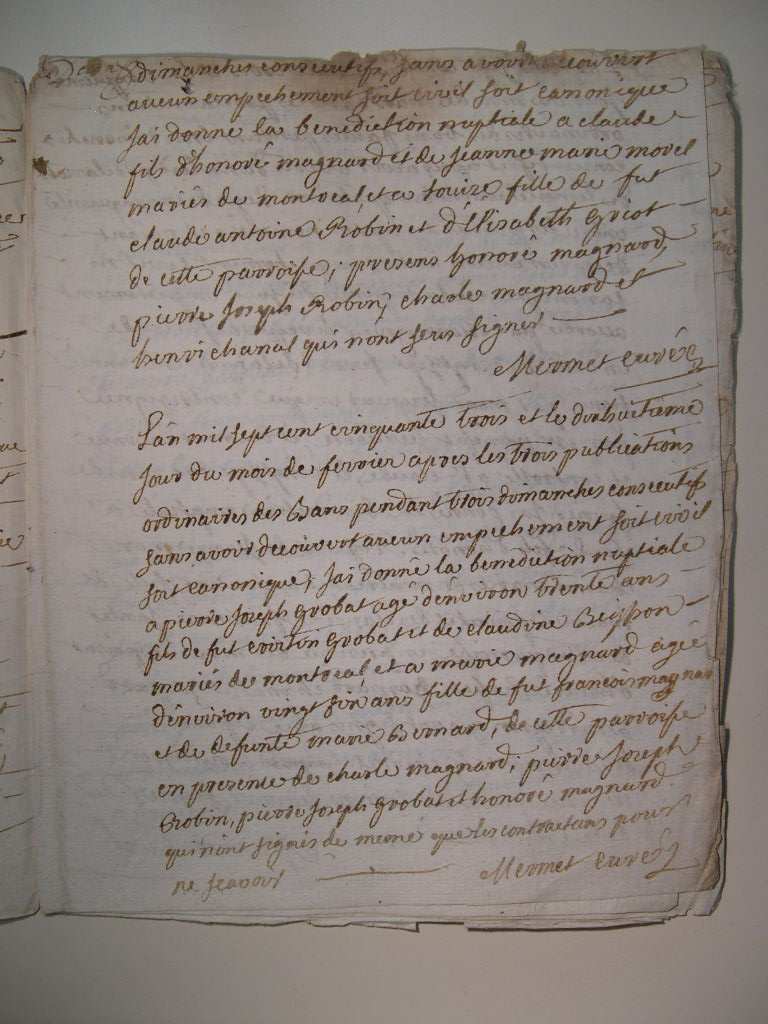 dimanches consecutifs, sans avoir decouvert
aucun empechement soit civil soit canonique
Jai donné la benediction nuptiale a claude
fils d'honoré magnard et de Jeanne marie morel
mariés de montreal, et a Louize fille de fut
claude antoine Robin et d'Elisabeth Griot
de cette parroisse; presens honoré magnard,
pierre Joseph Robin, charle magnard et
henri chanal qui n'ont sceus signer
Mermet curé
L'an mil sept cent cinquante trois et le dixhuitieme
Jour du mois de fevrier apres les trois publications
ordinaires des Bans pendant trois dimanches consecutifs
sans avoir decouvert aucun empechement soit civil
soit canonique, Jai donné la benediction nuptiale
a pierre Joseph Grobat agé d'environ trente ans
fils de fut Grobat et de claudine
mariés de montreal, et a marie magnard agée
d'environ vingt six ans fille de fut francois magnard
et de defunte marie Bernard, de cette parroisse
en presence de charle magnard, pierre Joseph
Robin, pierre Joseph Grobat et honoré magnard
qui n'ont signés de meme que les contractans pour
ne scavoir
Mermet curé